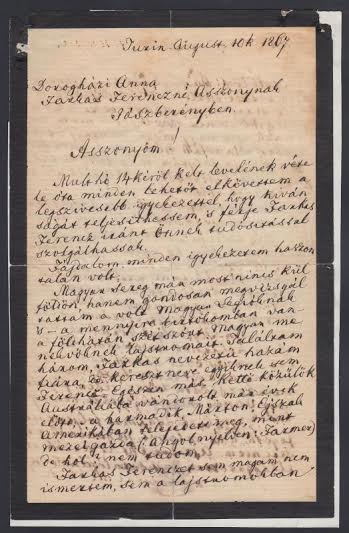 Turin August. 10k 1867
Dorogházi Anna
Farkas Ferenczné Asszonynak
Jászberényben.
Asszonyom!
Mult hó 14kéről kelt levelének véte
le óta minden tehetőt elkövettem a
legszivesebb igyekezettel, hogy kiván
ságát teljesíthessem, s férje Farkas
Ferencz iránt Önnek tudósitással
szolgálhassak.
Fájdalom, minden igyekezetem haszon
talan volt.
Magyar sereg már most nincs kül
földön, hanem gondosan megvizsgál
tattam a volt Magyar Légióknak
is – a mennyire birtokomban van
a földhátán szétszórt magyar me
nekvőknek lajstromait. Találtam
három, Farkas nevezetű hazám
fiára, de keresztneve egyiknek sem
Ferencz. Egészen más. Kettő közülök
Australiába vándorolt már évek
előtt, a harmadik, Márton, Éjszak
Amerikában telepedett meg, mint
mezei gazda (angol nyelven: Farmer)
de hol? nem tudom.
Farkas Ferenczet sem magam nem
ismertem, sem a lajstromokban